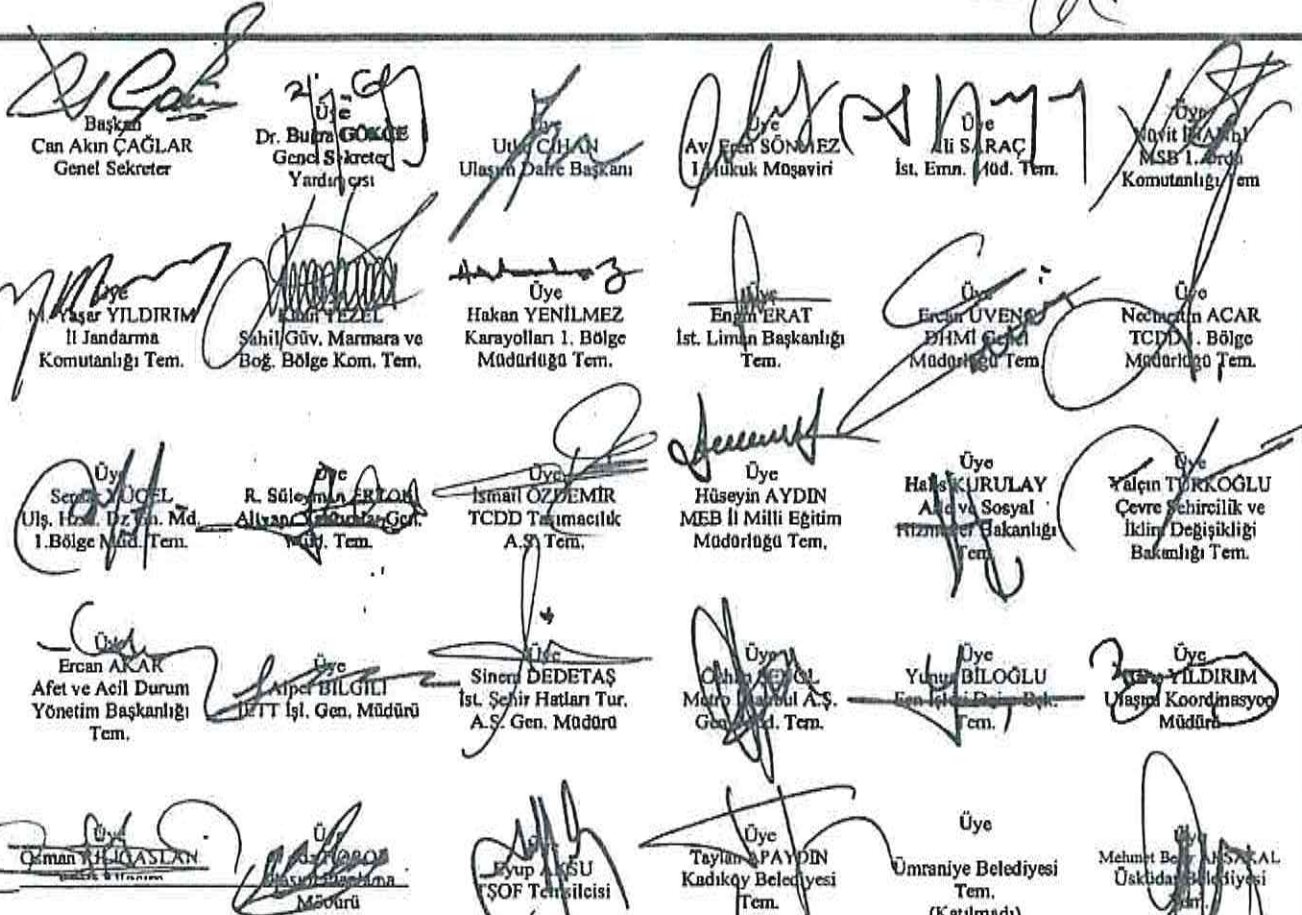 Başkan
Can Akın ÇAĞLAR
Genel Sekreter
Üye
Dr. Buğra GÖKÇE
Genel Sekreter
Yardımcısı
Üye
Utku CİHAN
Ulaşım Daire Başkanı
Üye
Av. Eren SÖNMEZ
I. Hukuk Müşaviri
Üye
Ali SARAÇ
İst. Emn. Müd. Tem.
Üye
MSB 1. Ordu
Komutanlığı Tem
Üye
M. Yaşar YILDIRIM
İl Jandarma
Komutanlığı Tem.
Sahil Güv. Marmara ve
Boğ. Bölge Kom. Tem.
Üye
Hakan YENİLMEZ
Karayolları 1. Bölge
Müdürlüğü Tem.
Üye
Engin ERAT
İst. Liman Başkanlığı
Tem.
Üye
Ercan
DHMİ Genel
Müdürlüğü Tem
Üye
Necmettin ACAR
TCDD 1. Bölge
Müdürlüğü Tem.
Üye
YÜCEL
Ulş. Hzm. Dz Gn. Md.
1.Bölge Müd. Tem.
Üye
R. Süleyman
Müd. Tem.
Üye
İsmail ÖZDEMİR
TCDD Taşımacılık
A.Ş. Tem.
Üye
Hüseyin AYDIN
MEB İl Milli Eğitim
Müdürlüğü Tem.
Üye
KURULAY
Aile ve Sosyal
Hizmetler Bakanlığı
Tem.
Üye
Yalçın TÜRKOĞLU
Çevre Şehircilik ve
İklim Değişikliği
Bakanlığı Tem.
Üye
Ercan AKAR
Afet ve Acil Durum
Yönetim Başkanlığı
Tem.
Üye
Alper BİLGİLİ
İETT İşl. Gen. Müdürü
Üye
Sinem DEDETAŞ
İst. Şehir Hatları Tur.
A.Ş. Gen. Müdürü
Üye
Metro İstanbul A.Ş.
Gen. Müd. Tem.
Üye
Yunus BİLOĞLU
Fen İşleri Daire Bşk.
Tem.
Üye
YILDIRIM
Ulaşım Koordinasyon
Müdürü
Üye
Osman
Üye
Müdürü
Üye
Eyup AKSU
TŞOF Temsilcisi
Üye
Taylan APAYDIN
Kadıköy Belediyesi
Tem.
Üye
Ümraniye Belediyesi
Tem.
(Katılmadı)
Üye
Mehmet AKSAKAL
Üsküdar Belediyesi
Tem.